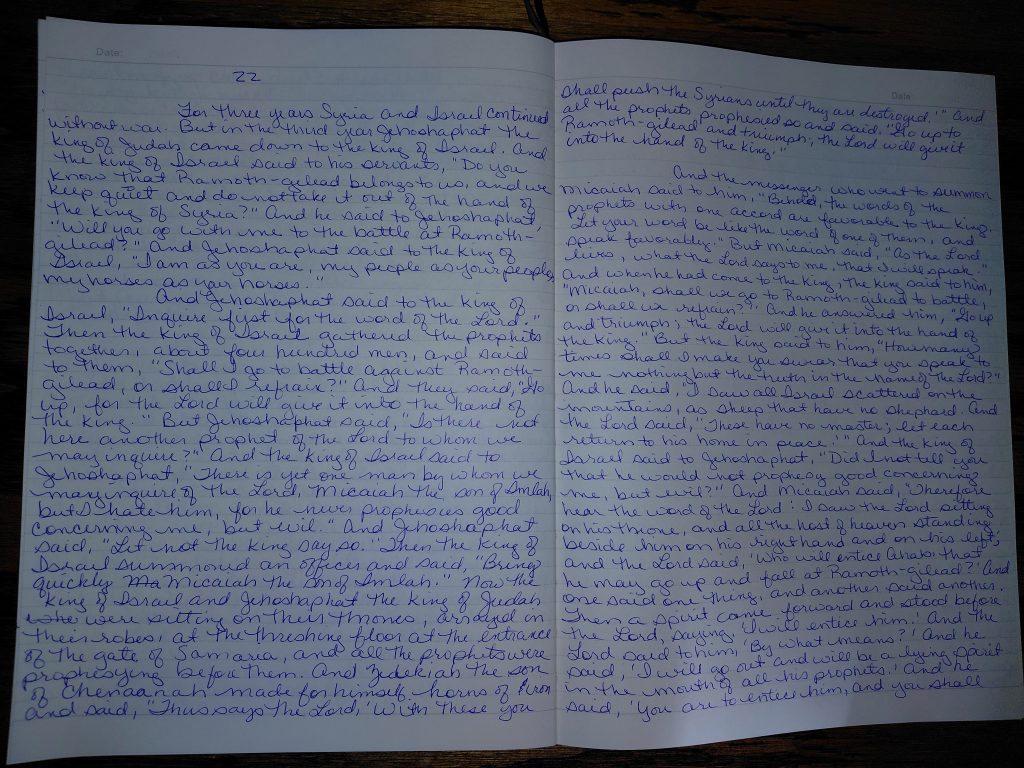 Date:
22
For three years Syria and Israel continued
without war. But in the third year Jehoshaphat the
king of Judah came down to the king of Israel. And
the king of Israel said to his servants, "Do you
know that Ramoth-gilead belongs to us, and we
keep quiet and do not take it out of the hand of
the king of Syria?" And he said to Jehoshaphat,
"Will you go with me to the battle at Ramoth-
gilead?" And Jehoshaphat said to the king of
Israel, "I am as you are, my people as your people,
my horses as your horses."
And Jehoshaphat said to the king of
Israel, "Inquire first for the word of the Lord."
Then the king of Israel gathered the prophets
together, about four hundred men, and said
to them, "Shall I go to battle against Ramoth-
gilead, or shall I refrain?" And they said, "Go
up, for the Lord will give it into the hand of
the king." But Jehoshaphat said, "Is there not
here another prophet of the Lord to whom we
may inquire?" And the king of Israel said to
Jehoshaphat, "There is yet one man by whom we
may inquire of the Lord, Micaiah the son of Imlah,
but I hate him, for he never prophesies good
concerning me, but evil." And Jehoshaphat
said, "Let not the king say so." Then the king of
Israel summoned an officer and said, "Bring
quickly Ma Micaiah the son of Imlah." Now the
king of Israel and Jehoshaphat the king of Judah
were sitting on their thrones, arrayed in
their robes, at the threshing floor at the entrance
of the gate of Samaria, and all the prophets were
prophesying before them. And Zedekiah the son
of Chenaanah made for himself horns of iron
and said, "Thus says the Lord, 'With these you
Date:
shall push the Syrians until they are destroyed.'" And
all the prophets prophesied so and said, "Go up to
Ramoth-gilead and triumph; the Lord will give it
into the hand of the king."
And the messenger who went to summon
Micaiah said to him, "Behold, the words of the
prophets with one accord are favorable to the king.
Let your word be like the word of one of them, and
speak favorably." But Micaiah said, "As the Lord
lives, what the Lord says to me, that I will speak."
And when he had come to the king, the king said to him,
"Micaiah, shall we go to Ramoth-gilead to battle,
or shall we refrain?" And he answered him, "Go up
and triumph; the Lord will give it into the hand of
the king." But the king said to him, "How many
times shall I make you swear that you speak to
me nothing but the truth in the name of the Lord?"
And he said, "I saw all Israel scattered on the
mountains, as sheep that have no shepherd. And
the Lord said, 'These have no master; let each
return to his home in peace.'" And the king of
Israel said to Jehoshaphat, "Did I not tell you
that he would not prophesy good concerning
me, but evil?" And Micaiah said, "Therefore
hear the word of the Lord: I saw the Lord sitting
on his throne, and all the host of heaven standing
beside him on his right hand and on his left;
and the Lord said, 'Who will entice Ahab, that
he may go up and fall at Ramoth-gilead?' And
one said one thing, and another said another.
Then a spirit came forward and stood before
the Lord, saying, 'I will entice him.' And the
Lord said to him, 'By what means?' And he
said, 'I will go out and will be a lying spirit
in the mouth of all his prophets.' And he
said, 'You are to entice him, and you shall